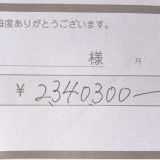 毎度ありがとうございます。
様 月
¥2340300—